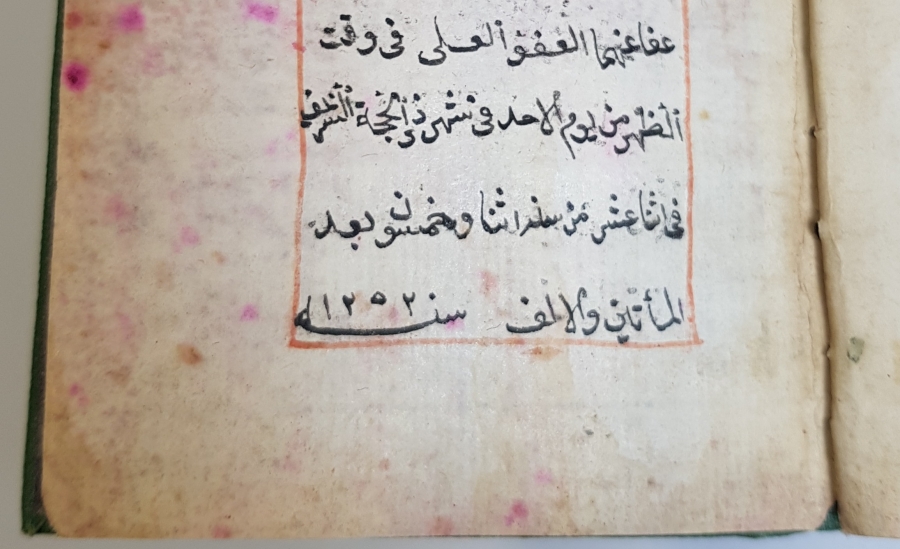 عفا عنهما العفو العلى فى وقت
الظهر من يوم الاحد فى شهر ذى الحجة الشريف
فى اثنا عشر من سنه اثنا وخمسون بعد
المأتين والالف سنه ١٢٥٢